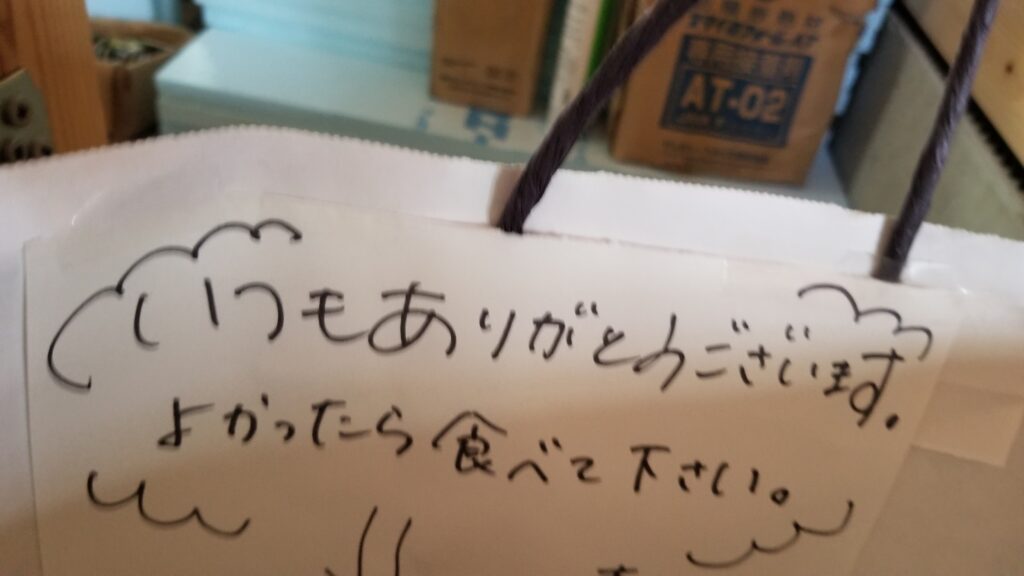 いつもありがとうございます。
よかったら食べて下さい。
AT-02